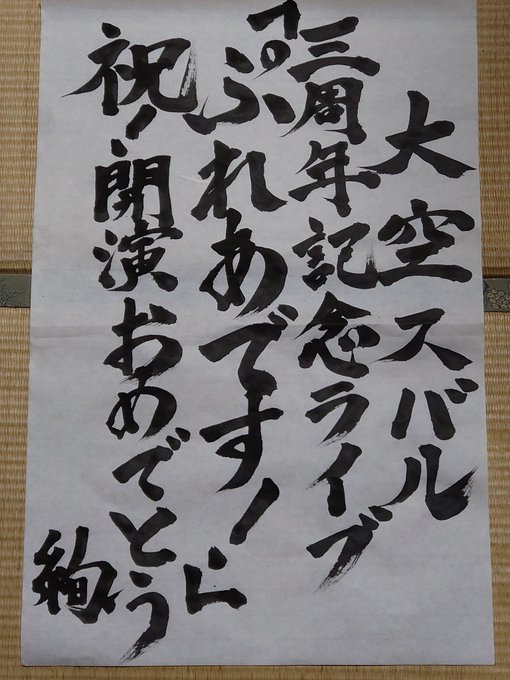 大空スバル
三周年記念ライブ
「ぷれあです!」
祝!開演おめでとう
絢